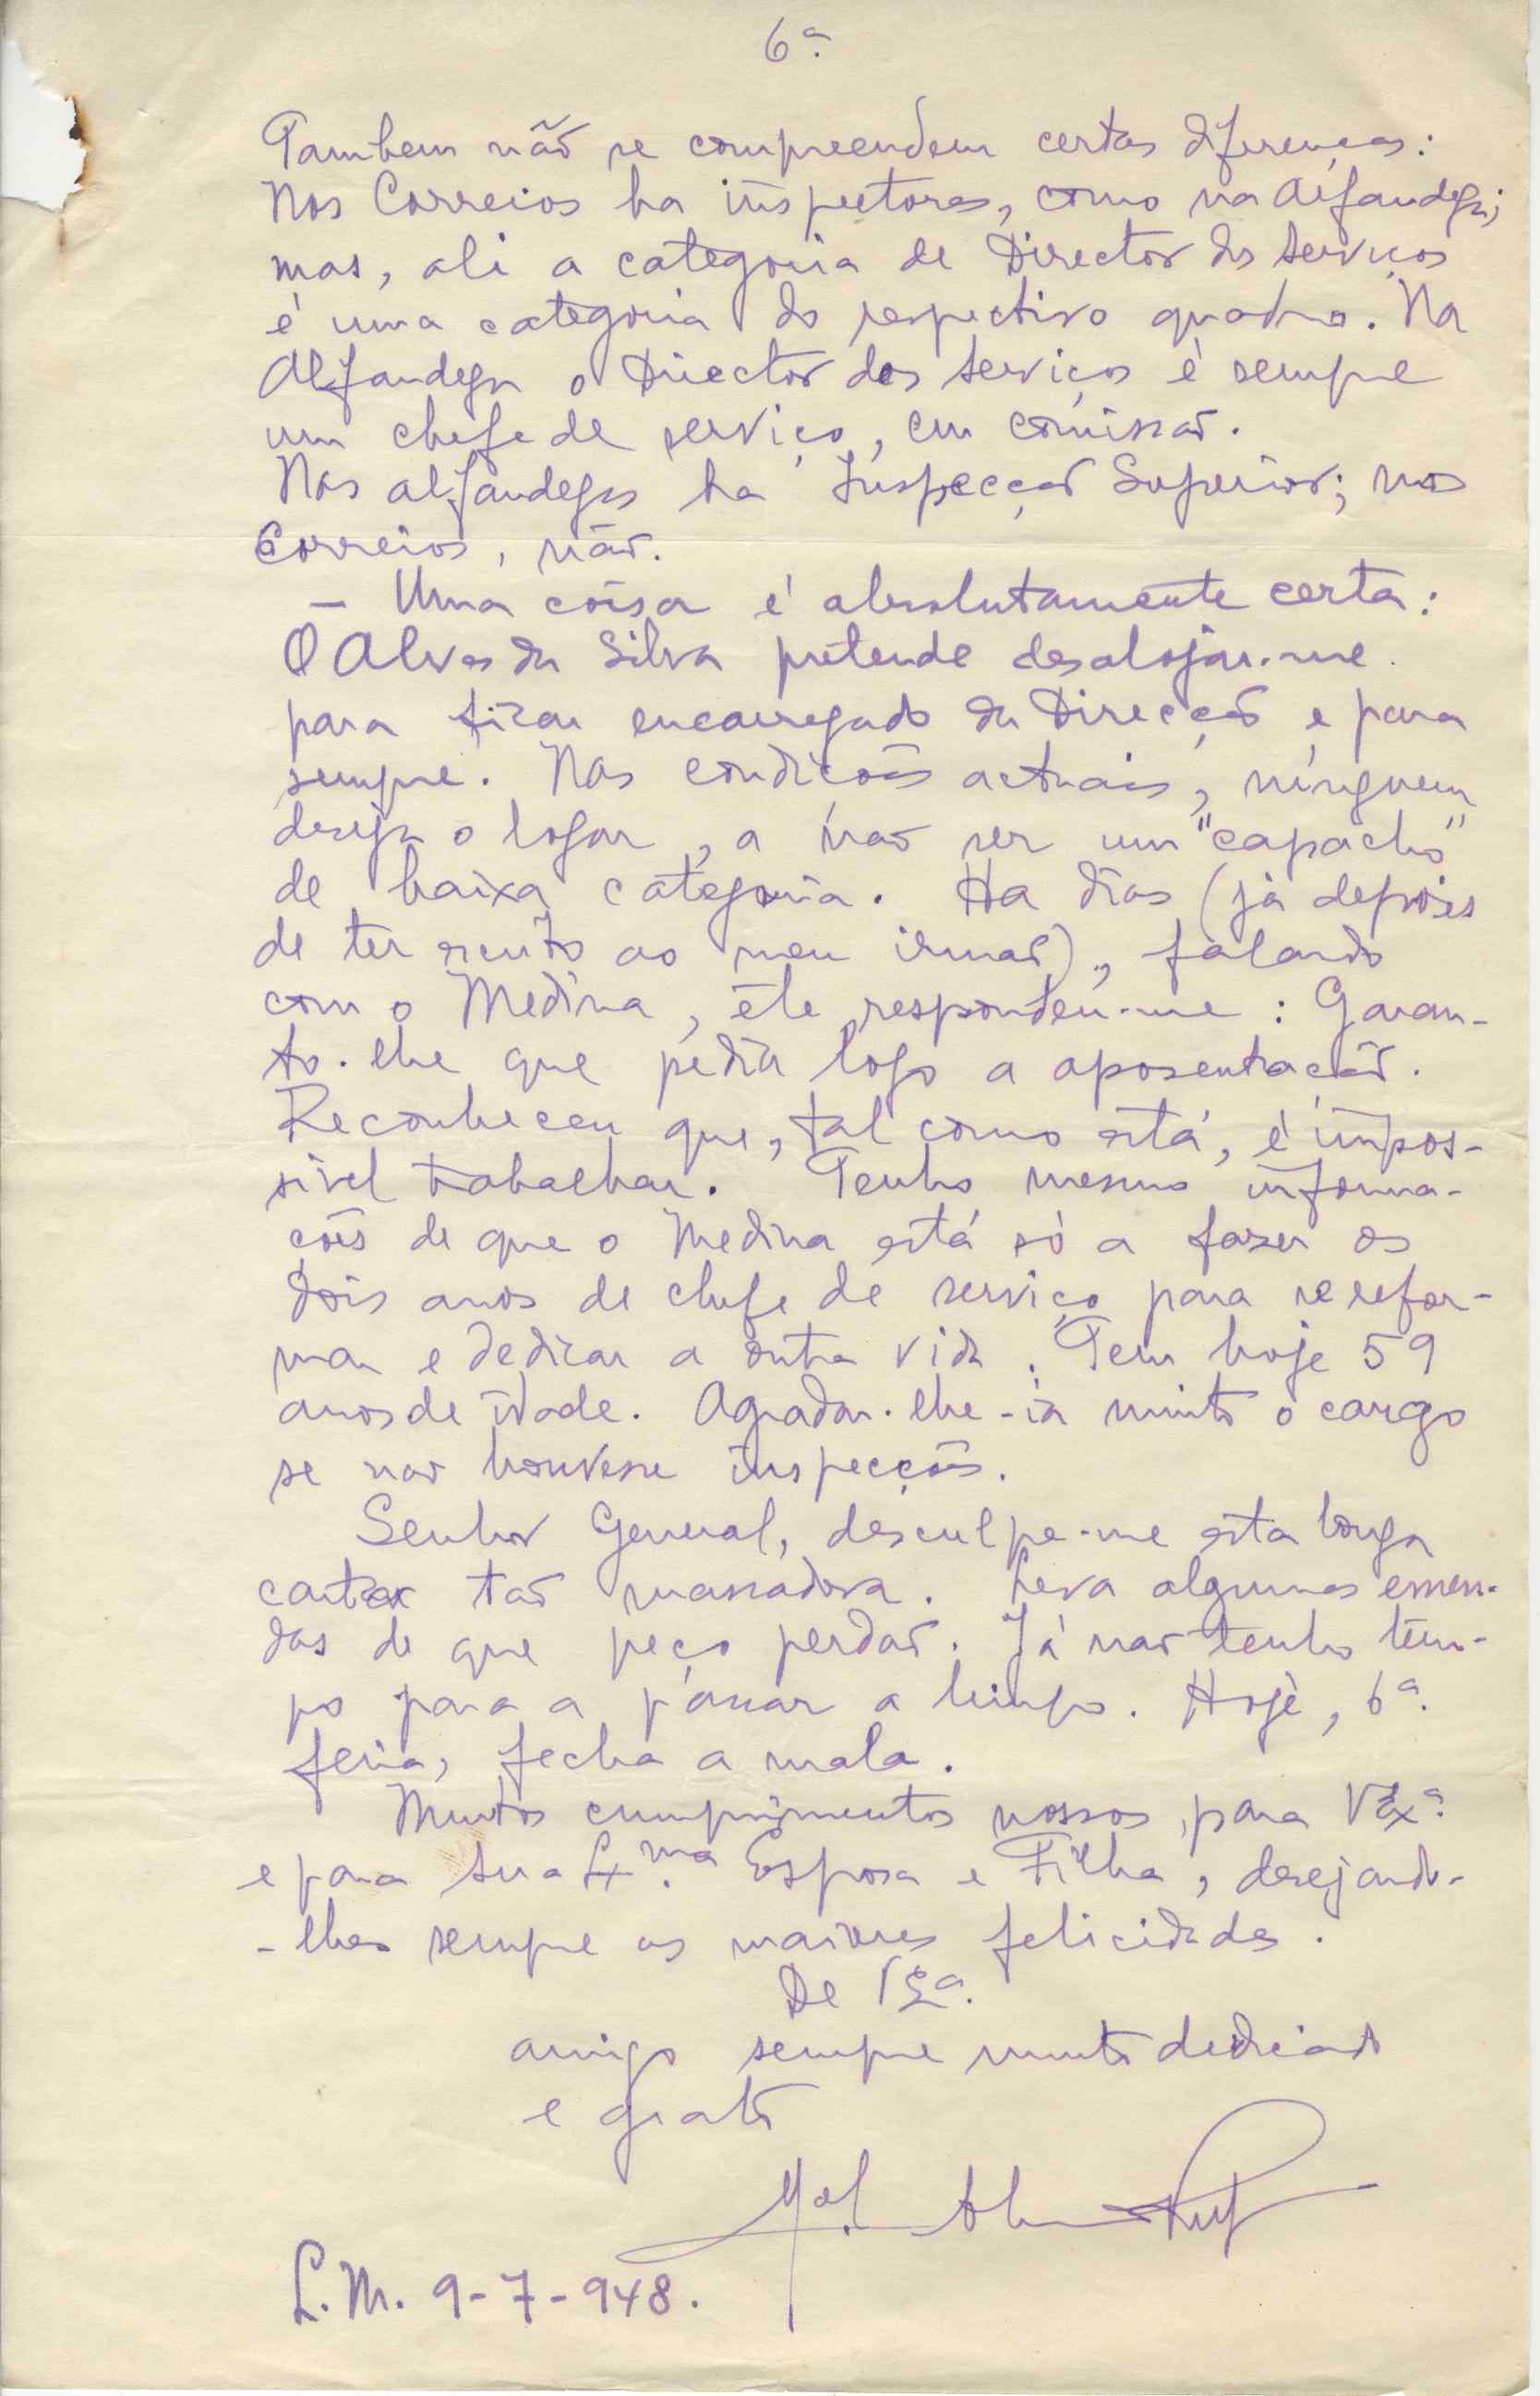 6ª.
Tambem não se compreendem certas diferenças:
Nos Correios ha inspectores, como na Alfandega;
mas, ali a categoria de Director dos Serviços
é uma categoria do respectivo quadro. Na
Alfandega o Director dos Serviços é sempre
um chefe de serviço, em comissão.
Nas alfandegas ha Inspecção Superior; nos
Correios, não.
- Uma coisa é absolutamente certa:
O Alves da Silva pretende desalojar-me
para ficar encarregado da Direcção e para
sempre. Nas condições actuais, ninguem
deseja o logar, a não ser um "capacho"
de baixa categoria. Ha dias (já depois
de ter escrito ao meu irmão), falando
com o Medina, êle respondeu-me: Garan-
to-lhe que pedia logo a aposentação.
Reconheceu que, tal como está, é impos-
sivel trabalhar. Tenho mesmo informa-
ções de que o Medina está só a fazer os
dois anos de chefe de serviço para se refor-
mar e dedicar a outra vida. Tem hoje 59
anos de idade. Agradar-lhe-ia muito o cargo
se não houvesse inspecções.
Senhor General, desculpe-me esta longa
carta tão massadora. Leva algumas emen-
das de que peço perdão. Já não tenho tem-
po para a passar a limpo. Hoje, 6ª.
feira, fecha a mala.
Muitos cumprimentos nossos para V. Exª.
e para Sua Ex.ma Esposa e Filha, desejando-
-lhes sempre as maiores felicidades.
De V. Exª.
amigo sempre muito dedicado
e grato
L.M. 9-7-948.